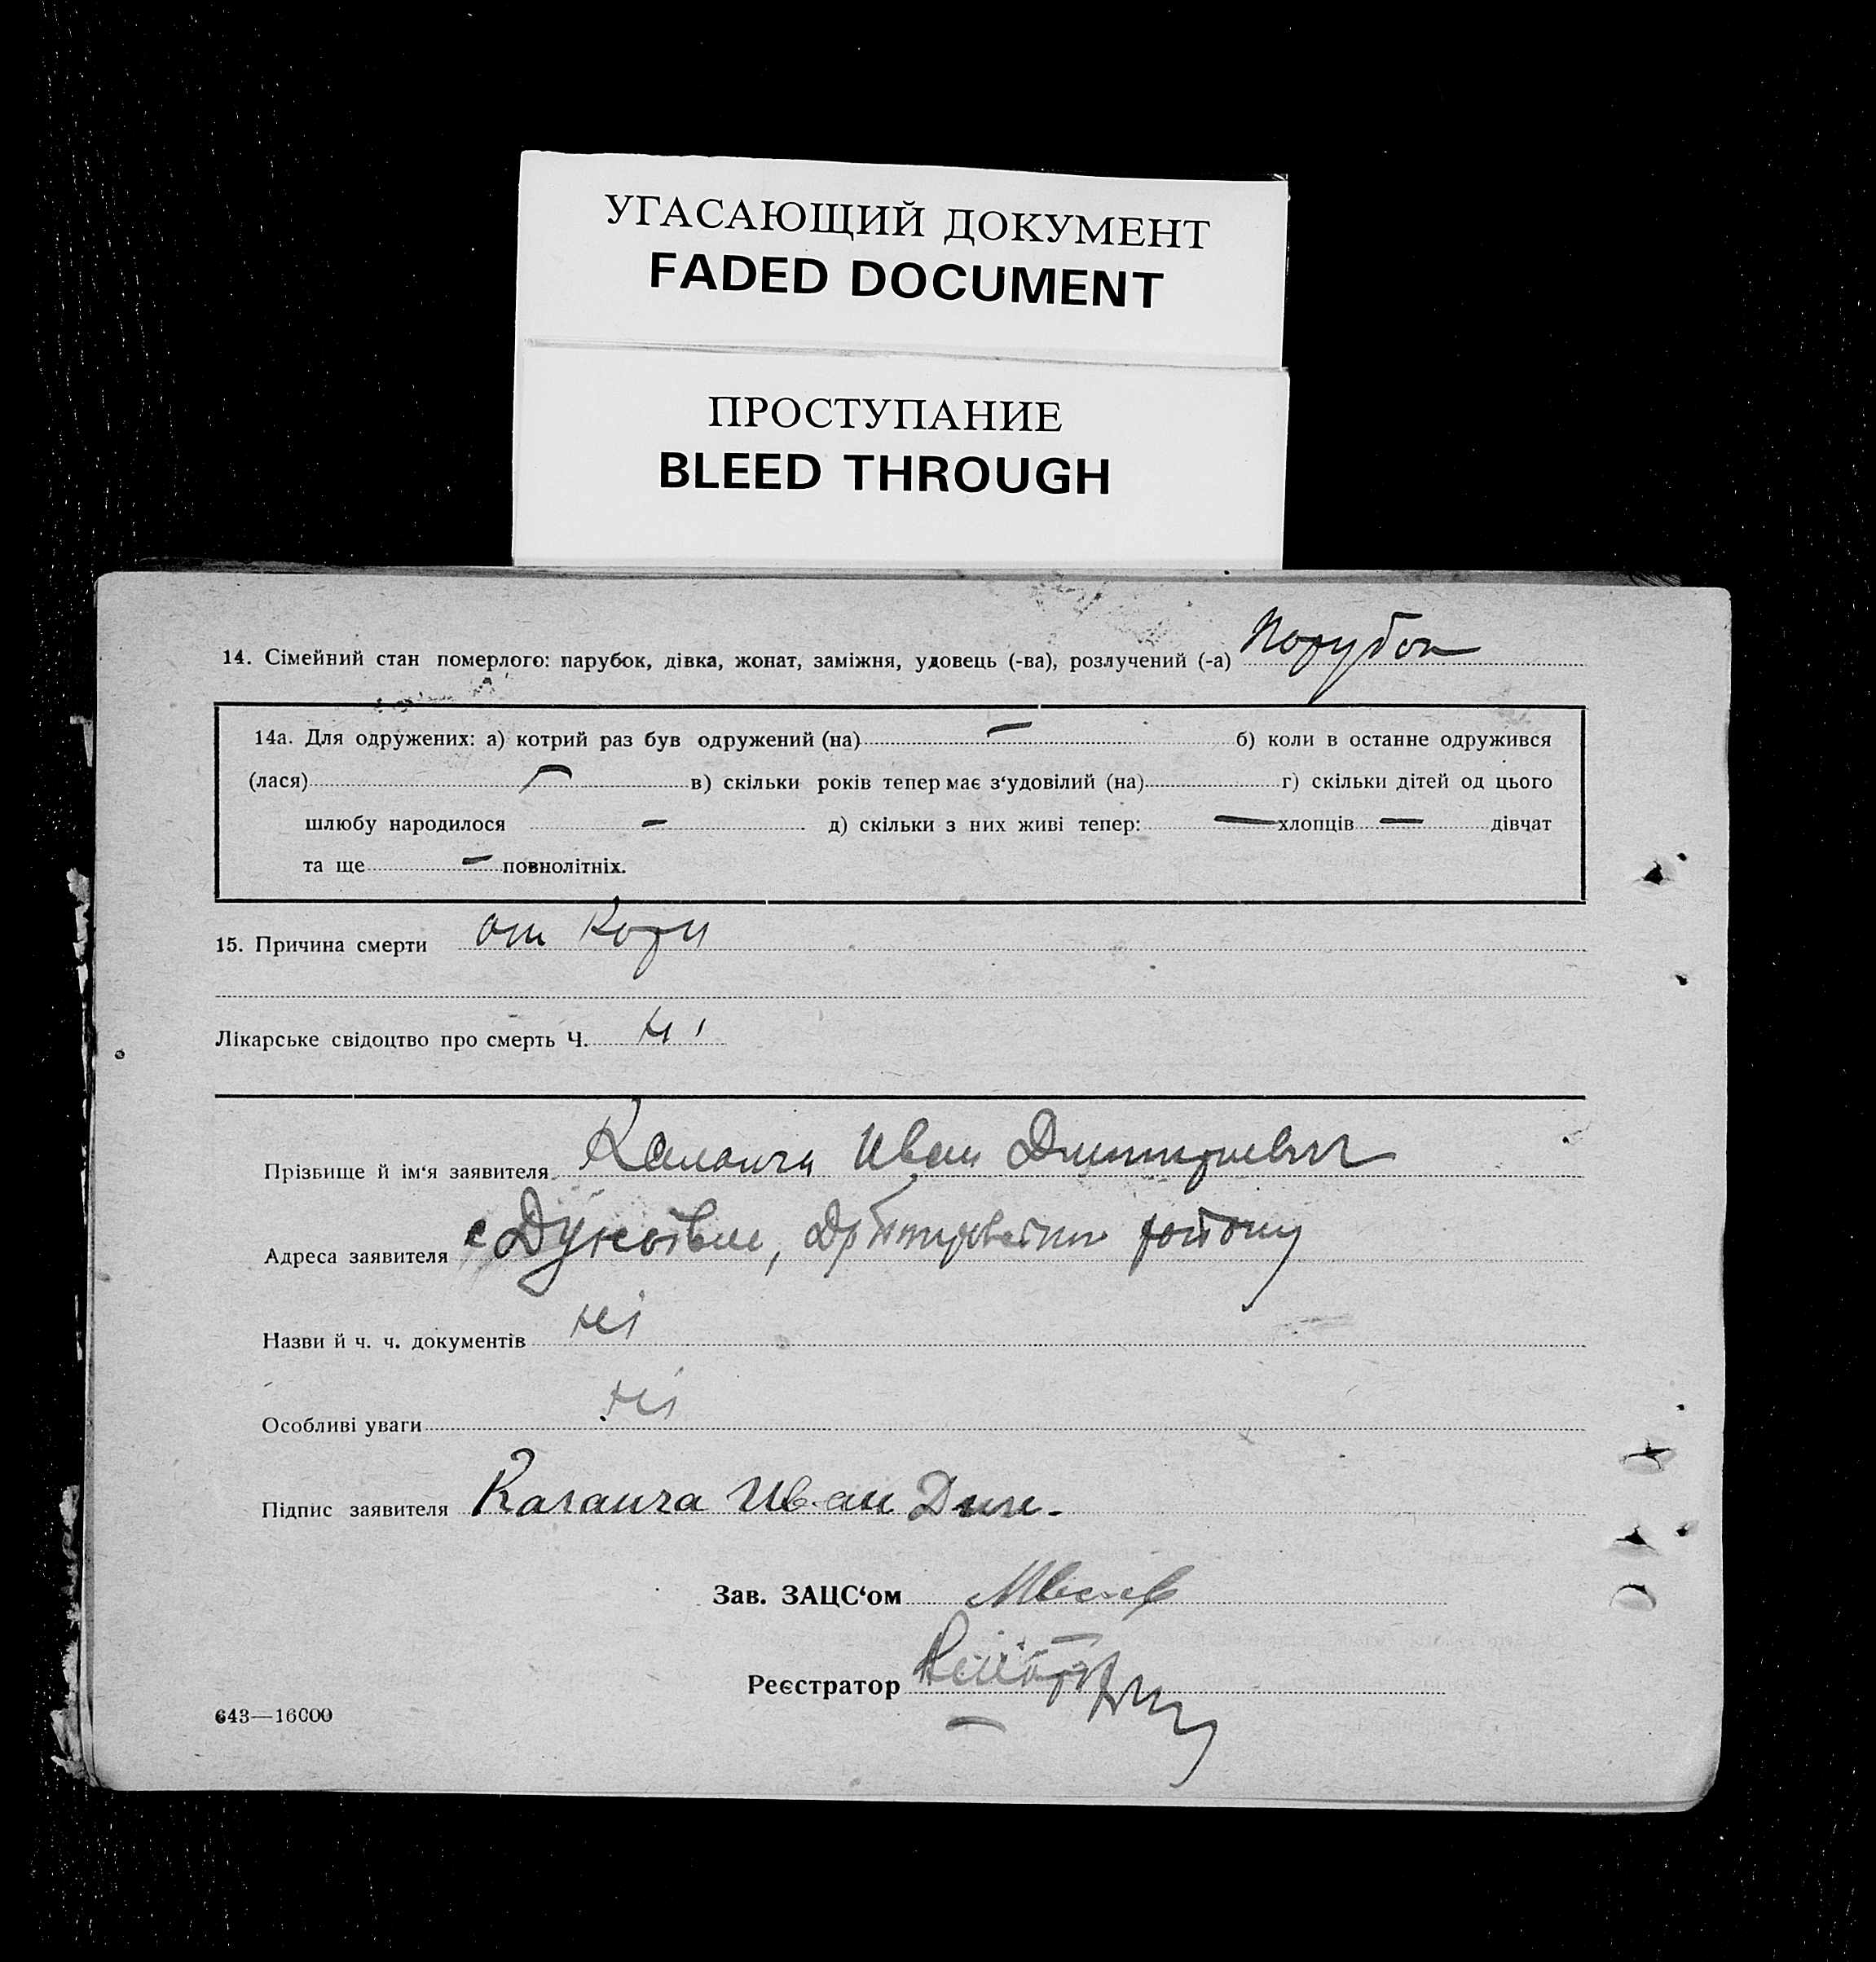 УГАСАЮЩИЙ ДОКУМЕНТ
FADED DOCUMENT
ПРОСТУПАНИЕ
BLEED THROUGH
14. Сімейний стан померлого: парубок, дівка, жонат, заміжня, удовець (-ва), розлучений (-а) Парубок
14а. Для одружених: а) котрий раз був одружений (на) — б) коли в останне одружився
(лася) — в) скільки років тепер має з‘удовілий (на) г) скільки дітей од цього
шлюбу народилося — д) скільки з них живі тепер: — хлопців — дівчат
та ще — повнолітніх.
15. Причина смерти от Кори
Лікарське свідоцтво про смерть Ч. ні
Прізвище й ім‘я заявителя Каланча Иван Дмитриевич
Адреса заявителя с району
Назви й ч. ч. документів ні
Особливі уваги ні
Підпис заявителя Каланча Иван Дми.
Зав. ЗАЦС‘ом
Реєстратор
643—16000